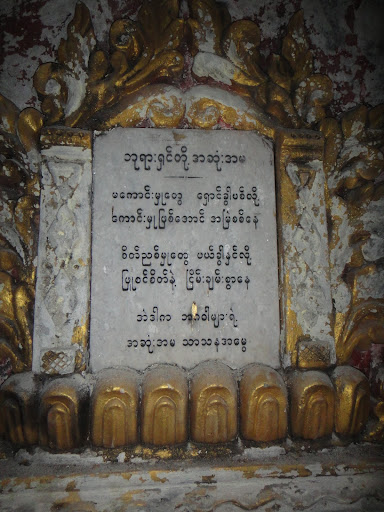 ဘုရားရှင်တို့ အဆုံးအမ
မကောင်းမှုတွေ ရှောင်ခွါပစ်လို့
ကောင်းမှုဖြစ်အောင် အမြဲစစ်နေ
စိတ်ညစ်မှုတွေ ပယ်ခွါနှင်လို့
ဖြူစင်စိတ်နဲ့ ငြိမ်းချမ်းစွာနေ
ဘဲဒါက အဂ္ဂဝါများရဲ့
အဆုံးအမ သာသနာ့အမွေ